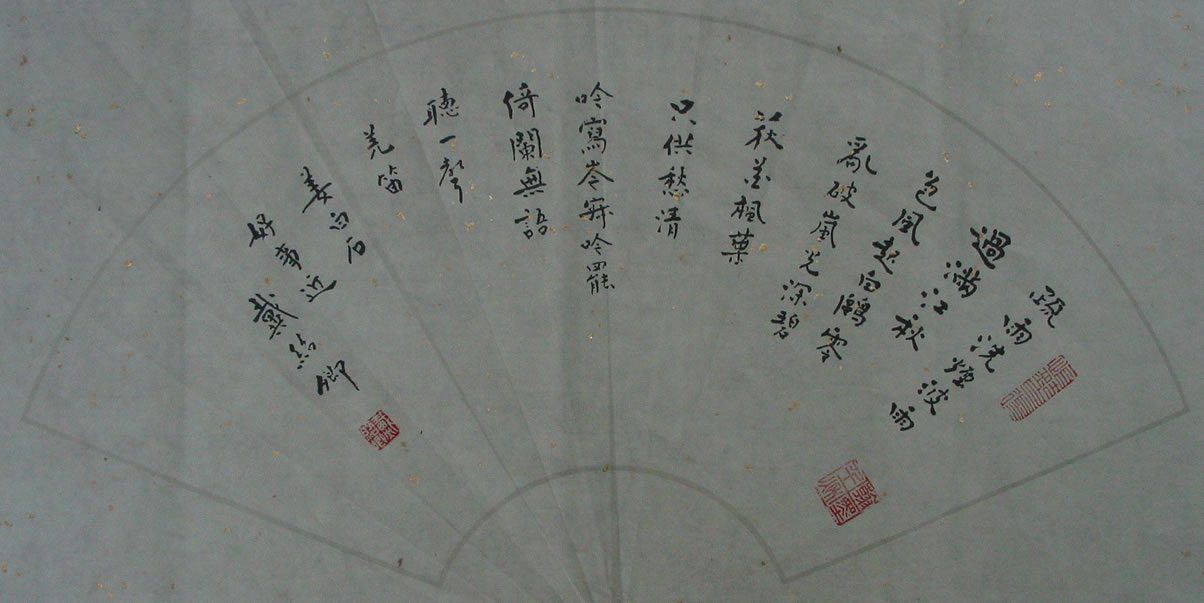 疏雨洗煙波雨
過滿江秋
色風起白鷗零
亂破嵐光深碧
荻花楓葉
只供愁清
吟寫岑寂吟罷
倚闌無語
聽一聲
羌笛
姜白石
好事近
戴 卿